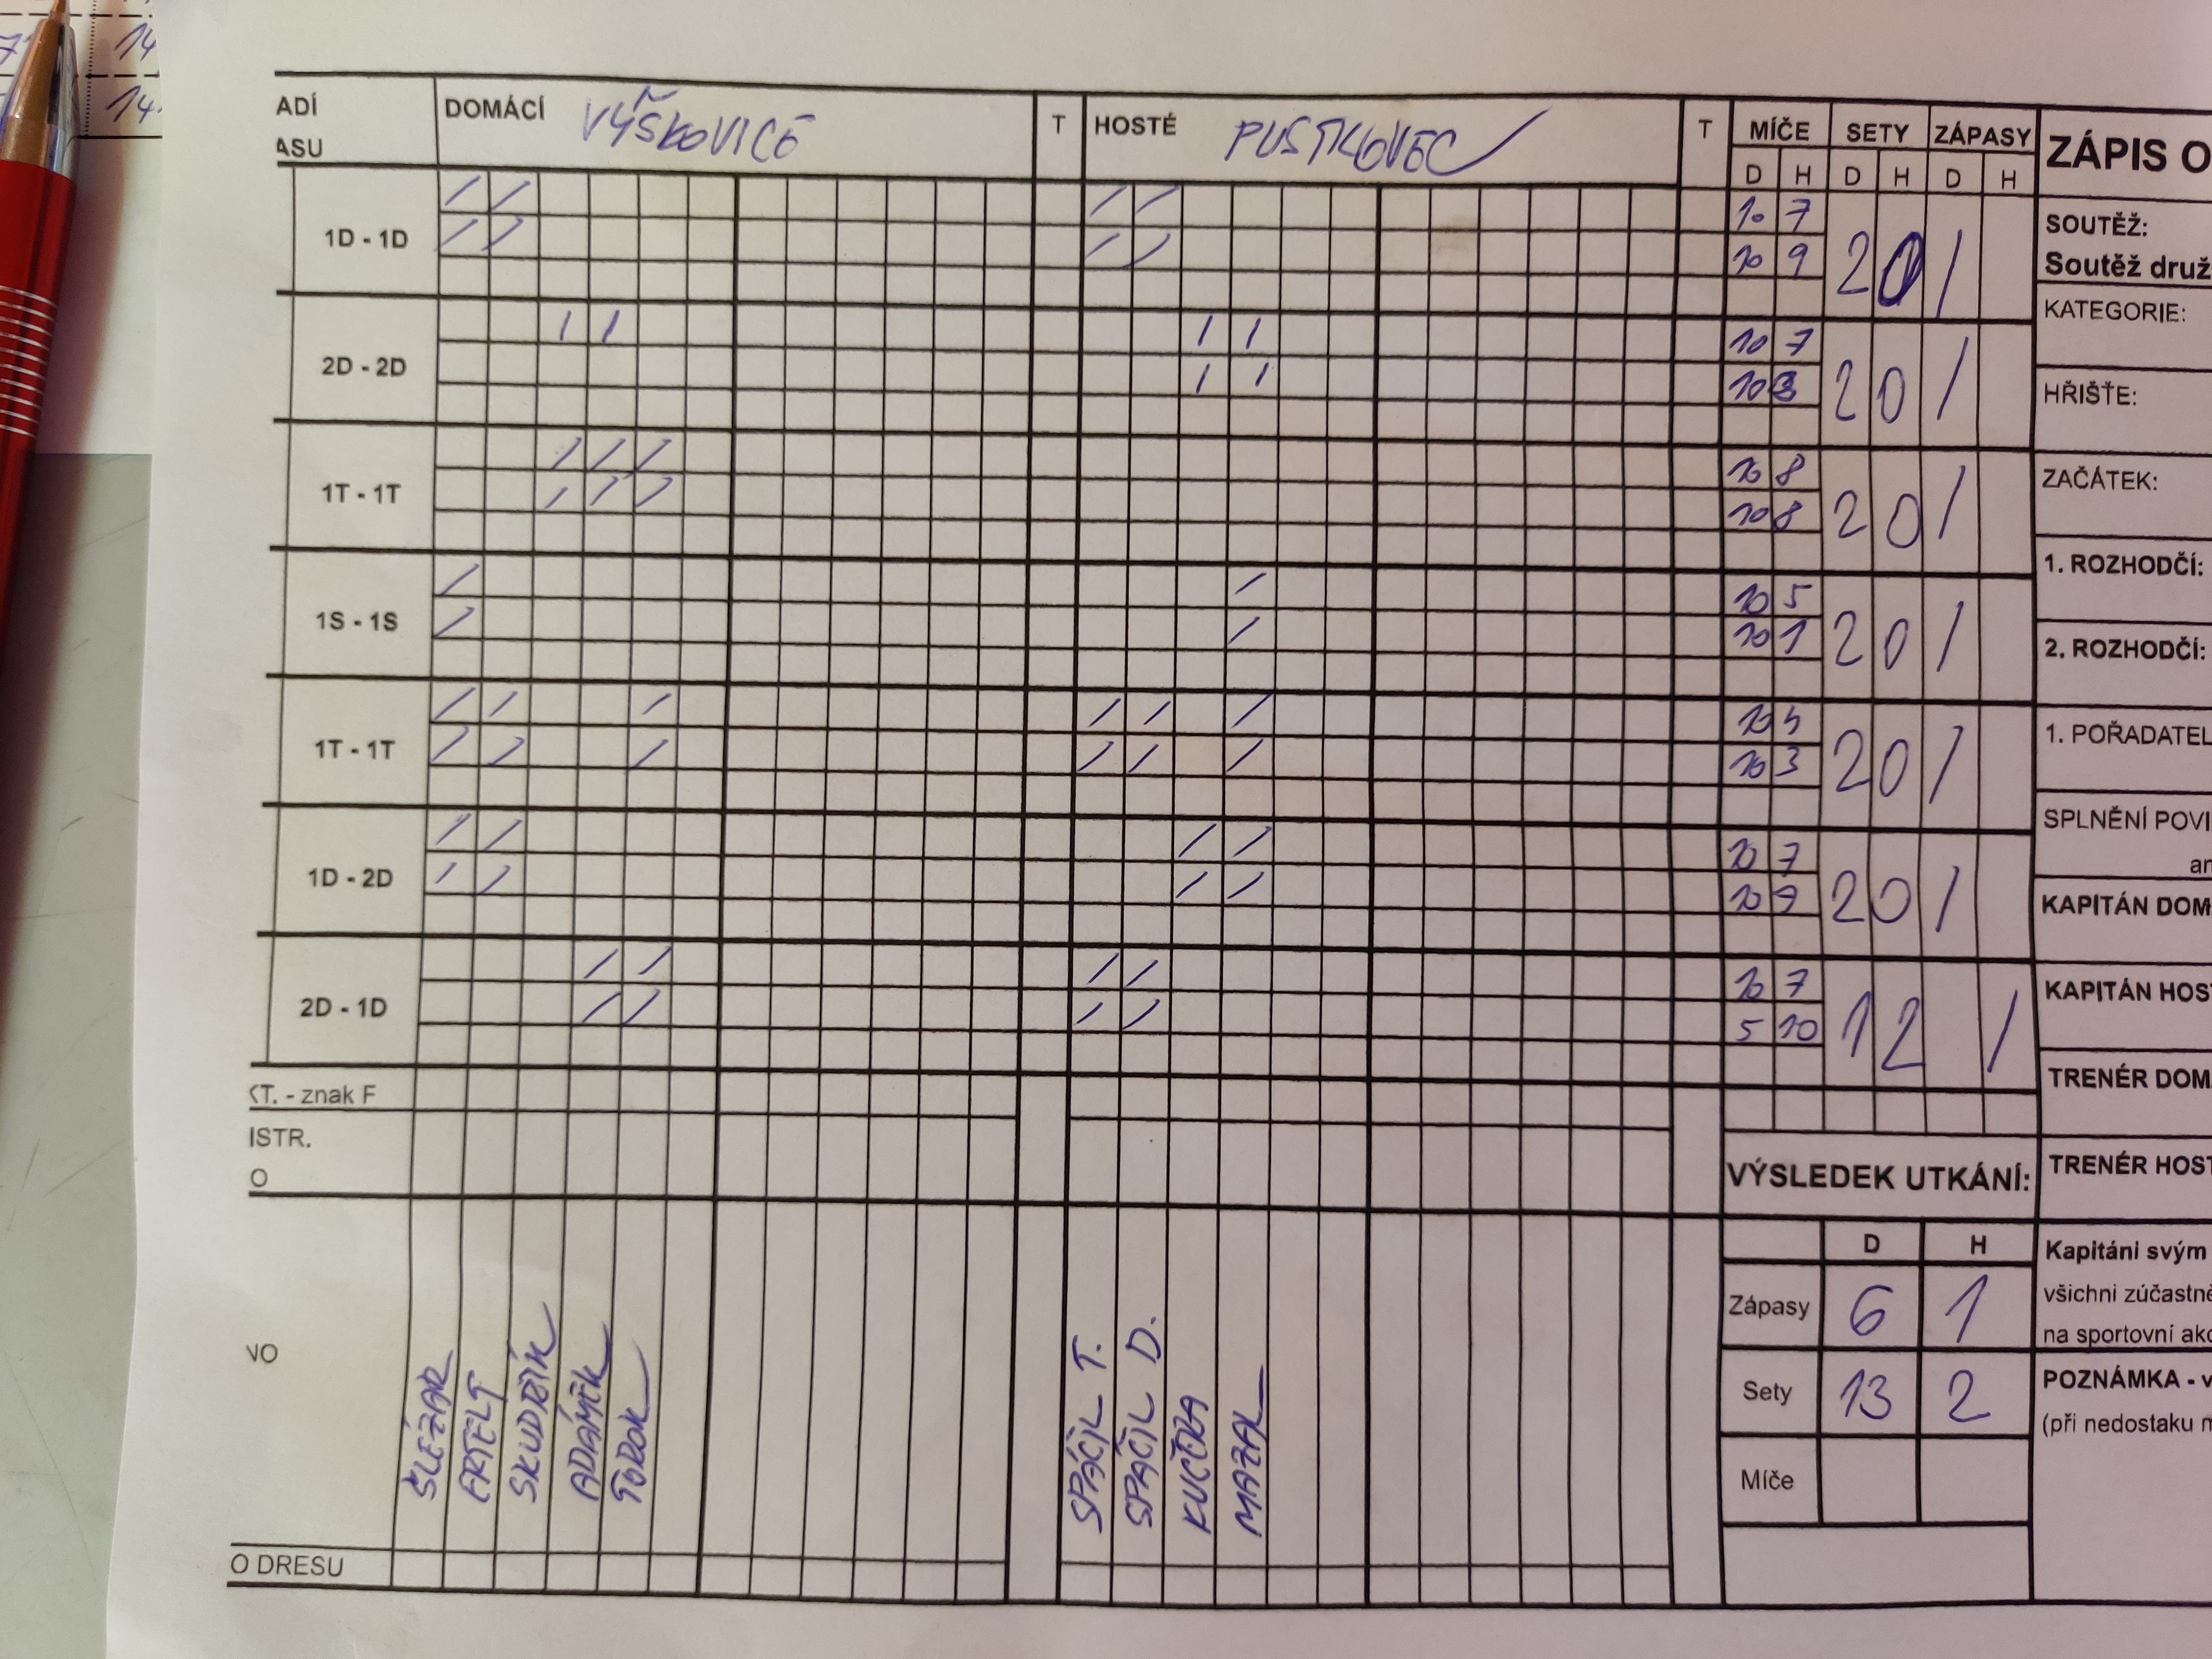 ADÍ DOMÁCÍ VÝŠKOVICE T HOSTÉ PUSTKOVEC T MÍČE SETY ZÁPASY ZÁPIS O
ASU D H D H D H
1D - 1D 10 7 2 0 /
10 9
SOUTĚŽ:
Soutěž druž
2D - 2D 10 7 2 0 /
10 8
KATEGORIE:
HŘIŠTE:
1T - 1T 10 8 2 0 /
10 8
ZAČÁTEK:
1S - 1S 10 5 2 0 /
10 1
1. ROZHODČÍ:
2. ROZHODČÍ:
1T - 1T 10 2 0 /
10 3
1. POŘADATEL
1D - 2D 10 7 2 0 /
10 9
SPLNĚNÍ POVI
an
KAPITÁN DOM
2D - 1D 10 7 1 2 /
5 10
KAPITÁN HOST
TRENÉR DOM
KT. - znak F
ISTR.
O
VÝSLEDEK UTKÁNÍ: TRENÉR HOST
D H
Zápasy 6 1
Sety 13 2
Míče
Kapitáni svým
všichni zúčastně
na sportovní ako
POZNÁMKA - v
(při nedostaku m
VO
ŠLÉZAR
ERTELT
SKUDŘÍK
ADÁMČÍK
TOROK
SPÁČIL T.
SPÁČIL D.
KUČERA
MAZAL
O DRESU
7 14
14